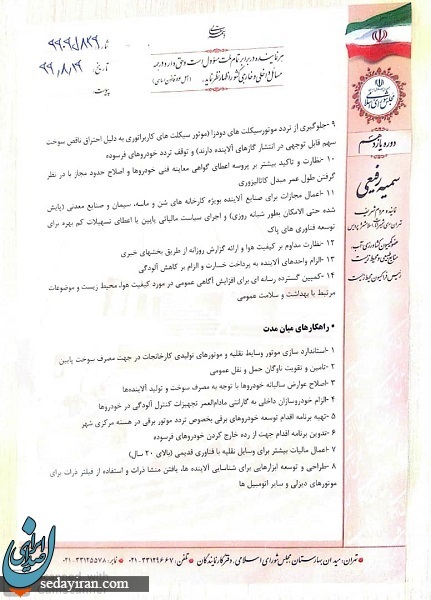 هر نماینده در برابر تمام ملت مسؤول است و حق دارد در همه
مسائل داخلی و خارجی کشور اظهار نظر نماید.
تاریخ ۹۹,۸,۲۹
پیوست
مجلس شورای اسلامی
دوره یازدهم
سمیه رفیعی
۹ -جلوگیری از تردد موتورسیکلت های دودزا (موتور سیکلت های کاربراتوری به دلیل احتراق ناقص سوخت
سهم قابل توجهی در انتشار گازهای آلاینده دارند) و توقف تردد خودروهای فرسوده
۱۰- نظارت و تاکید بیشتر بر پروسه اعطای گواهی معاینه فنی خودروها و اصلاح حدود مجاز با در نظر
گرفتن طول عمر مبدل کاتالیزوری
۱۱- اعمال مجازات برای صنایع آلاینده بویژه کارخانه های شن و ماسه، سیمان و صنایع معدنی (پایش
شده حتی الامکان بطور شبانه روزی) و اجرای سیاست مالیاتی پایین یا اعطای تسهیلات کم بهره برای
توسعه فناوری های پاک
۱۲- نظارت مداوم بر کیفیت هوا و ارائه گزارش روزانه از طریق بخشهای خبری
۱۳- الزام واحدهای آلاینده به پرداخت خسارت و الزام بر کاهش آلودگی
۱۴- کمپین گسترده رسانه ای برای افزایش آگاهی عمومی در مورد کیفیت هوا، محیط زیست و موضوعات
مرتبط با بهداشت و سلامت عمومی
• راهکارهای میان مدت
۱ -استاندارد سازی موتور وسایط نقلیه و موتورهای تولیدی کارخانجات در جهت مصرف سوخت پایین
۲ -تامین و تقویت ناوگان حمل و نقل عمومی
۳ -اصلاح عوارض سالیانه خودروها با توجه به مصرف سوخت و تولید آلاینده‌ها
۴ -الزام خودروسازان داخلی به گارانتی مادام‌العمر تجهیزات کنترل آلودگی در خودروها
۵ -تهیه برنامه اقدام توسعه خودروهای برقی بخصوص تردد موتور برقی در هسته مرکزی شهر
۶ -تدوین برنامه اقدام جهت از رده خارج کردن خودروهای فرسوده
۷ -اعمال مالیات بیشتر برای وسایل نقلیه با فناوری قدیمی (بالای ۲۰ سال)
۸ -طراحی و توسعه ابزارهایی برای شناسایی آلاینده ها، یافتن منشا ذرات و استفاده از فیلتر ذرات برای
موتورهای دیزلی و سایر اتومبیل ها
تهران: میدان بهارستان مجلس شورای اسلامی، دفتر کار نمایندگان • تلفن: ۳۳۱۴۹۶۶۷-۰۲۱ • نمابر: ۳۳۱۲۵۵۷۸-۰۲۱
صدای ایران
sedayiran.com